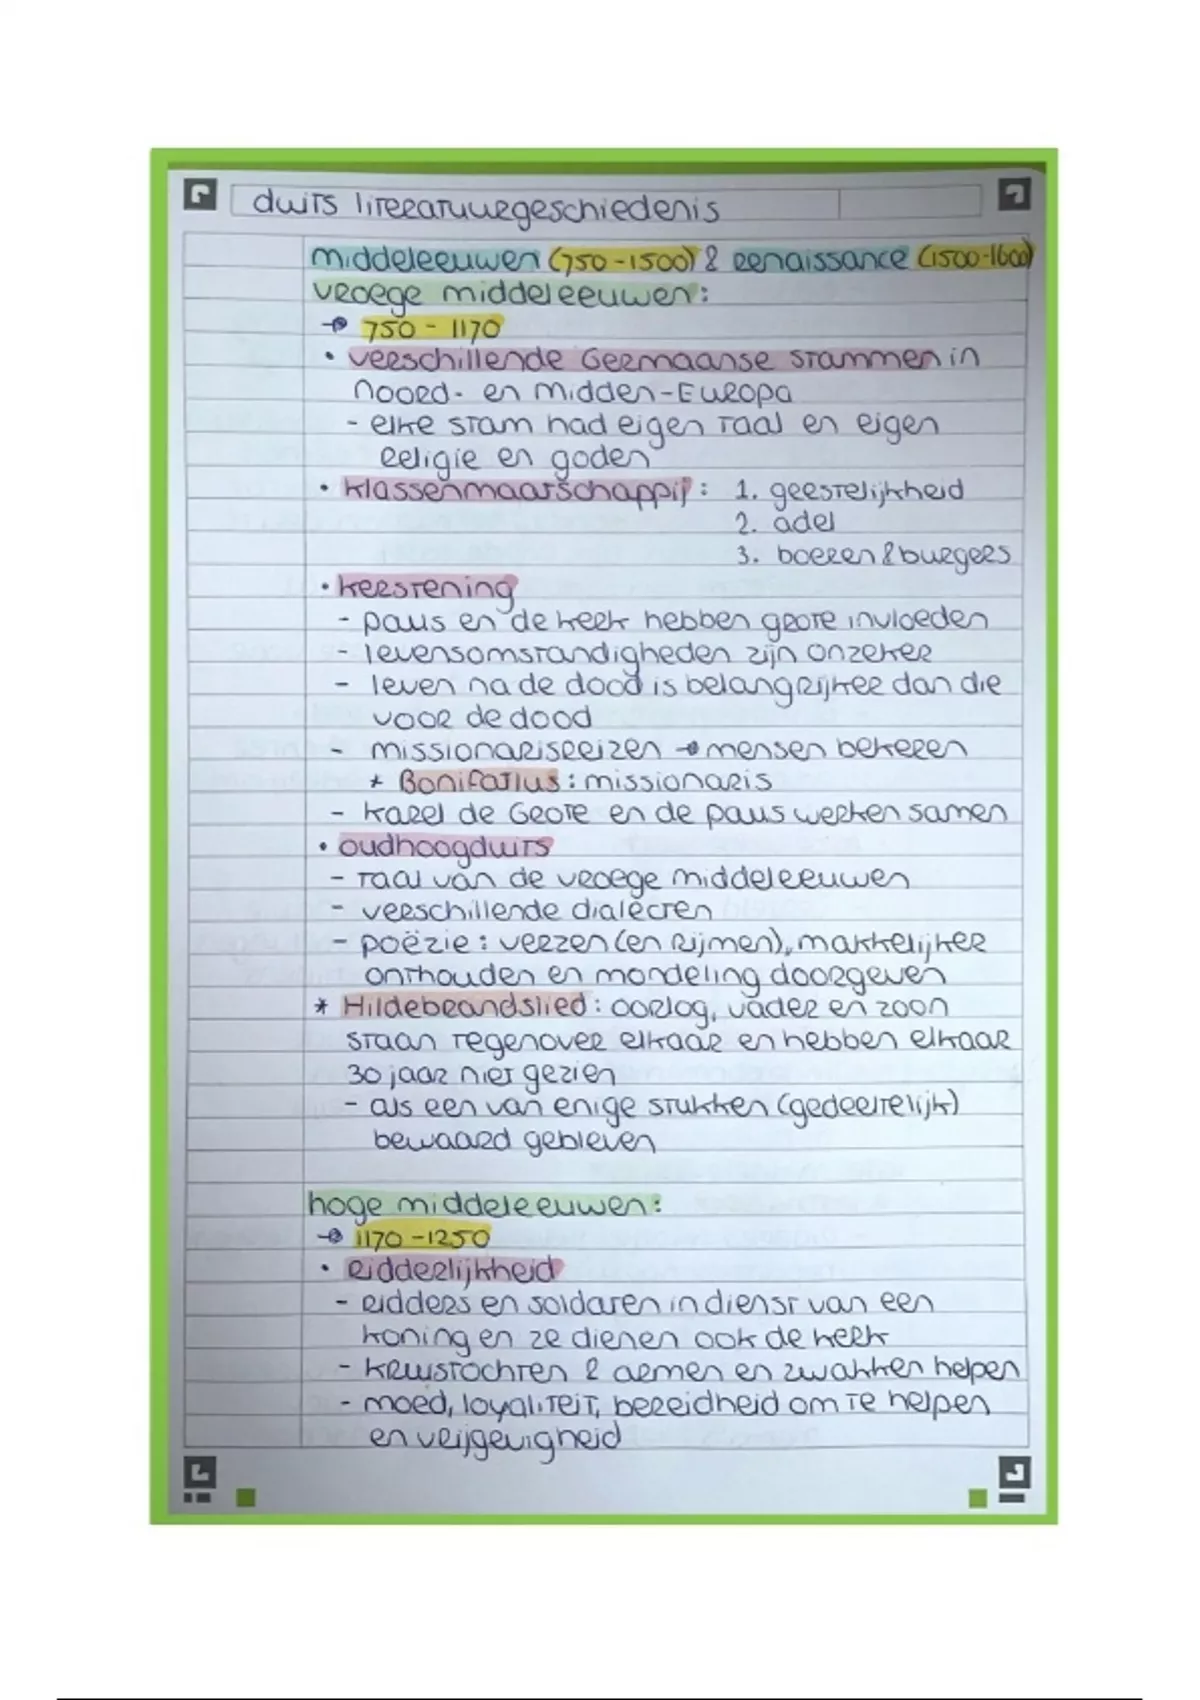 duits literatuurgeschiedenis
middeleeuwen (750-1500) & renaissance (1500-1600)
vroege middeleeuwen:
→ 750 - 1170
• verschillende Germaanse stammen in
noord- en midden-Europa
- elke stam had eigen taal en eigen
religie en goden
• klassenmaatschappij: 1. geestelijkheid
2. adel
3. boeren & burgers
• kerstening
- paus en de kerk hebben grote invloeden
- levensomstandigheden zijn onzeker
- leven na de dood is belangrijker dan die
voor de dood
- missionarisreizen → mensen bekeren
* Bonifatius: missionaris
- Karel de Grote en de paus werken samen
• oudhoogduits
- taal van de vroege middeleeuwen
- verschillende dialecten
- poëzie: verzen (en rijmen), makkelijker
onthouden en mondeling doorgeven
* Hildebrandslied: oorlog, vader en zoon
staan tegenover elkaar en hebben elkaar
30 jaar niet gezien
- als een van enige stukken (gedeeltelijk)
bewaard gebleven
hoge middeleeuwen:
→ 1170 - 1250
• ridderlijkheid
- ridders en soldaten in dienst van een
koning en ze dienen ook de kerk
- kruistochten & armen en zwakken helpen
- moed, loyaliteit, bereidheid om te helpen
en vrijgevigheid